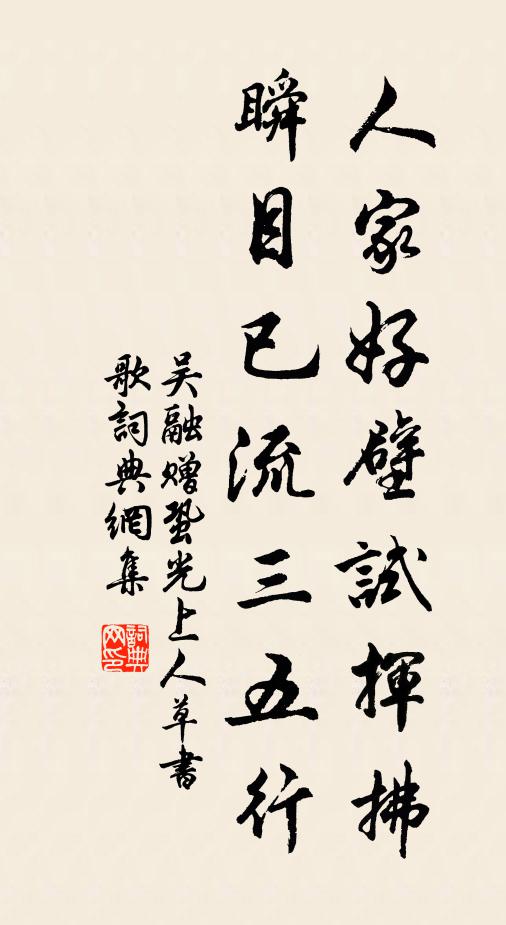 人家好壁試揮拂
瞬目已流三五行
吳融贈蛩光上人草書
歌詞典網集
詞典網印